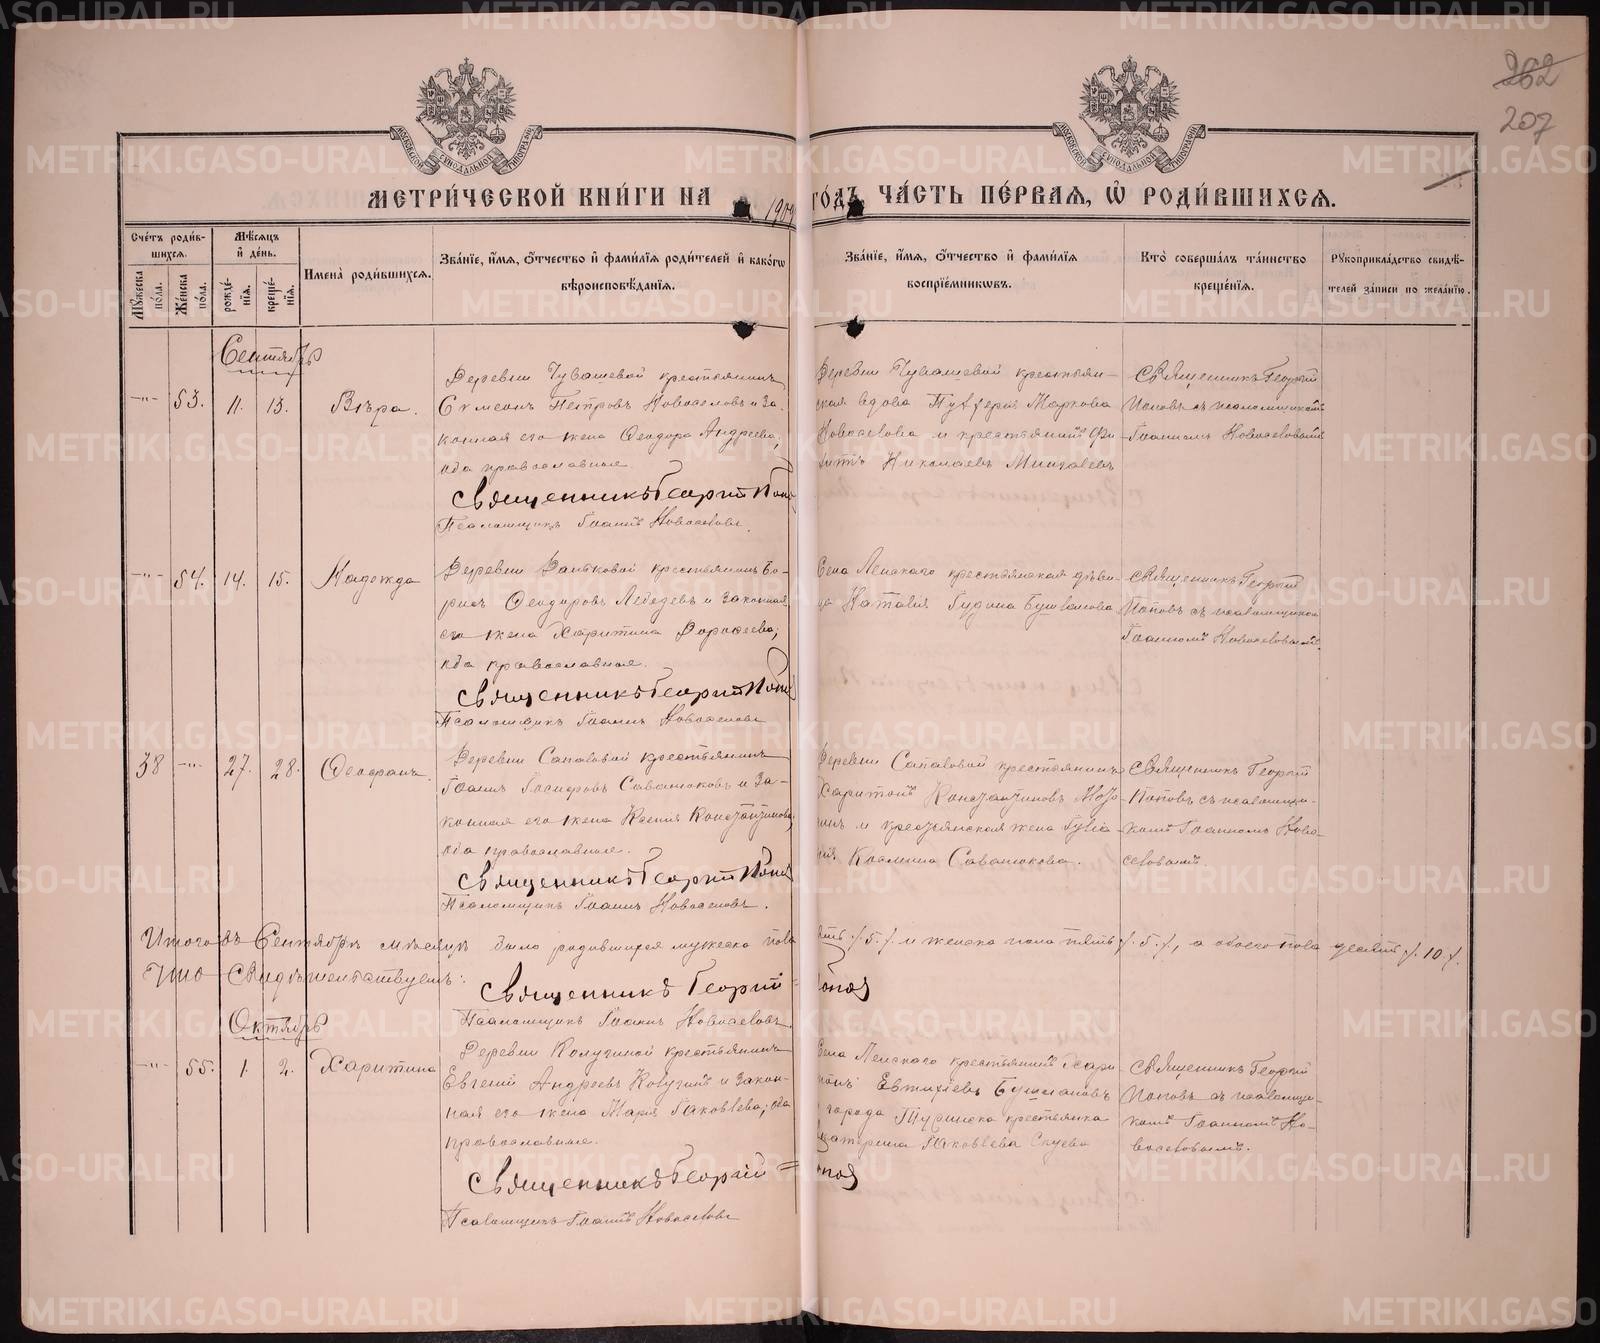 262
207
МОСКОВСКОЙ СѴНОДАЛЬНОЙ ТИПОГРАФІИ
МОСКОВСКОЙ СѴНОДАЛЬНОЙ ТИПОГРАФІИ
МЕТРИ́ЧЕСКОЙ КНИ́ГИ НА 1904 ГО́ДЪ, ЧА́СТЬ ПЕ́РВАЯ, Ѽ РОДИ́ВШИХСЯ.
Сче́тъ роди́в-
шихся.
Мꙋ́жеска по́ла.
Же́нска по́ла.
Мѣ́сяцъ
и҆ де́нь.
рожде́-
нїя.
креще́-
нїя.
Имена̀ роди́вшихся.
Зва́нїе, и҆́мя, ѻ҆́тчество и҆ фами́лїя роди́телей и҆ како́гѡ
вѣроисповѣ́данїя.
Зва́нїе, и҆́мя, ѻ҆́тчество и҆ фами́лїя
воспрїе́мникѡвъ.
Кто̀ соверша́лъ та́инство
креще́нїя.
Рꙋкоприкла́дство свидѣ́-
телей за́писи по жела́нїю.
Сентябрь
-"- 53. 11. 13. Вѣра.
Деревни Чувашевой крестьянинъ
Симеонъ Петровъ Новоселовъ и за-
конная его жена Ѳеодора Андреева;
оба православные.
Священникъ Георгій Попо
Псаломщикъ Іоаннъ Новоселовъ.
Деревни Чувашевой крестьян-
ская вдова Маркова
Новоселова и крестьянинъ Фи-
Николаевъ
Священникъ Георгій
Поповъ съ псаломщикомъ
Іоанномъ Новоселовымъ
-"- 54. 14. 15. Надежда
Деревни крестьянинъ Бо-
рисъ Ѳеодоровъ Лебедевъ и законная
его жена Харитина Дороѳеева;
оба православные.
Священникъ Георгій Попо
Псаломщикъ Іоаннъ Новоселовъ
Села Ленскаго крестьянская дѣви-
ца Наталія Гурина Бушланова
Священникъ Георгій
Поповъ съ псаломщикомъ
Іоанномъ Новоселовымъ.
38 -"- 27. 28. Ѳеофанъ.
Деревни Сапаловой крестьянинъ
Іоаннъ Іосифовъ Саванюковъ и за-
конная его жена Ксенія Константинова;
оба православные.
Священникъ Георгій Попо
Псаломщикъ Іоаннъ Новоселовъ.
Деревни Сапаловой крестьянинъ
Харитонъ Константиновъ
и крестьянская жена Іулiа-
Козмина Саванюкова.
Священникъ Георгій
Поповъ съ псаломщи-
комъ Іоанномъ Ново-
селовымъ.
Итого въ Сентябрѣ мѣсяцѣ было родившихся мужеска пола пять /. 5. /. и женска пола пять /. 5. /., а обоего пола десять /. 10 /.
Что свидѣтельствуемъ:
Священникъ Георгій Попов
Псаломщикъ Іоаннъ Новоселовъ.
Октябрь
-"- 55. 1. 2. Харитина
Деревни Калугиной крестьянинъ
Евгеній Андреевъ Калугинъ и закон-
ная его жена Марія Іаковлева; оба
православные.
Священникъ Георгій Попов
Псаломщикъ Іоаннъ Новоселовъ
Села Ленскаго крестьянинъ Хари-
тонъ Евтихіевъ Бушлановъ
и города Туринска крестьянка
Екатерина Іаковлева
Священникъ Георгій
Поповъ съ псаломщи-
комъ Іоанномъ Но-
воселовымъ.
METRIKI.GASO-URAL.RU